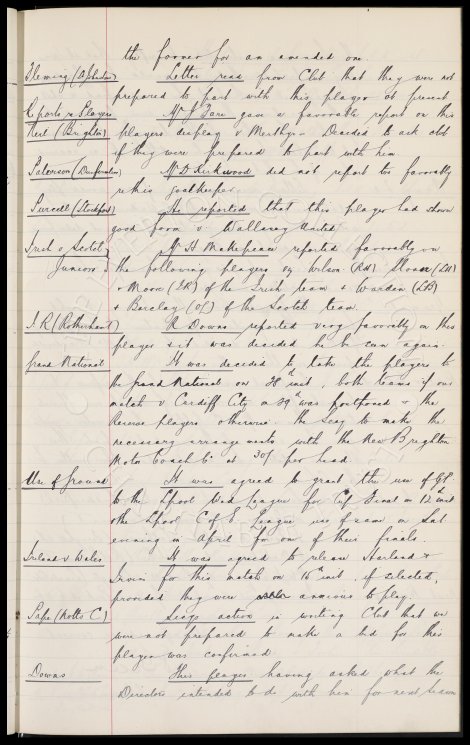 the former for an amended one.
Fleming ( Letter read from Club that they were not
prepared to part with this player at present
Reports re Players Mr J Fare gave a favorable report on this
Kerr (Brighton) players display v Merthyr. Decided to ask club
if they were prepared to part with him
Paterson ( Mr D Kirkwood did not report too favorably
re this goalkeeper.
Purcell (Stockport) He reported that this player had shown
good form v Wallasey United
Irish v Scotch Mr H Makepeace reported favorably on
Juniors the following players viz Wilson (RH) Sloan (LH)
+ Moore (IR) of the Irish team + Warden (LB)
+ Barclay (OL) of the Scotch team.
I.R. (Rotherham) R Downs reported very favorably on this
player & it was decided he be seen again.
Grand National It was decided to take the players to
the Grand National on 28th inst, both teams if our
match v Cardiff City on 29th was postponed & the
Reserve players otherwise. The Secy to make the
necessary arrangements with the New Brighton
Motor Coach Co at 30/- per head.
Use of Ground It was agreed to grant the use of GP
to the Lpool Wed League for Cup Final on 12th inst
& the Lpool C of E. League use of same on that
evening in April for on of their finals.
Ireland v Wales It was agreed to release Harland &
Irvin for this match on 15th inst, if selected,
provided they were anxious to play.
Pape (Notts C) Secys action in writing Club that we
were not prepared to make a bid for this
player was confirmed
Downs This player having asked what the
Directors intended to do with him for next season